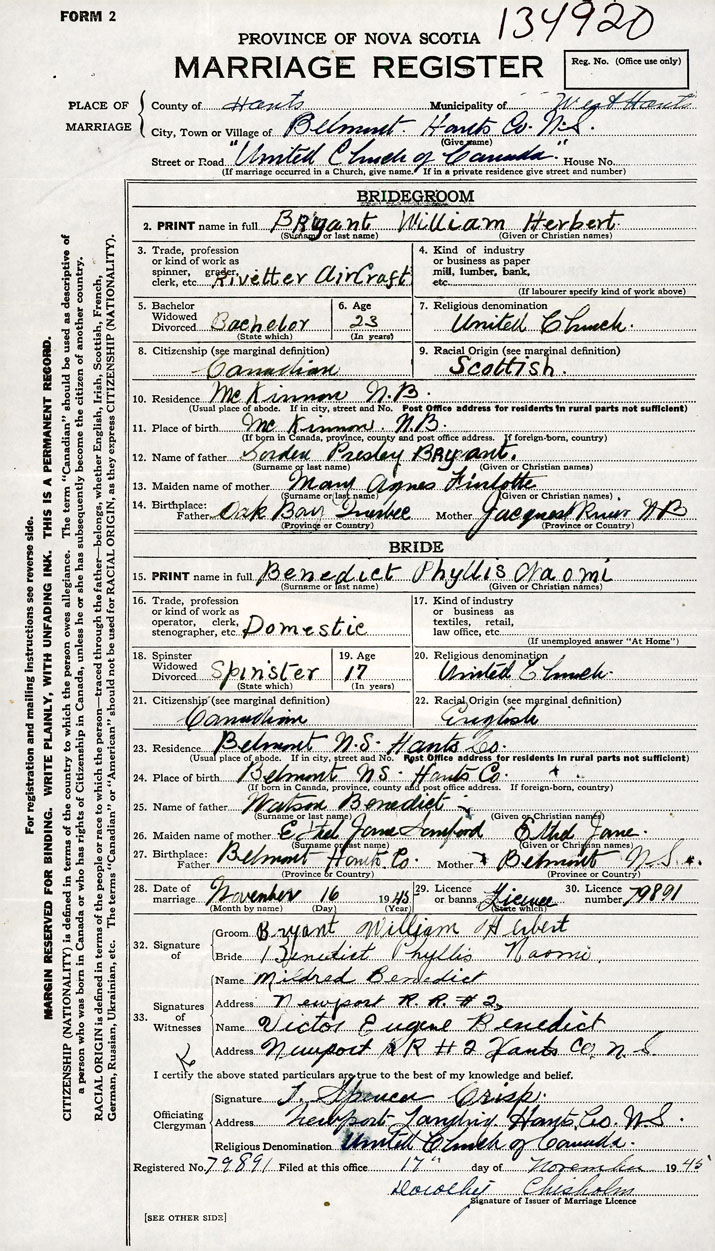 FORM 2
134920
PROVINCE OF NOVA SCOTIA
MARRIAGE REGISTER
Reg. No. (Office use only)
PLACE OF MARRIAGE
County of Hants Municipality of West Hants
City, Town or Village of Belmont. Hants Co. N.S.
(Give name)
Street or Road "United Church of Canada." House No.
(If marriage occurred in a Church, give name. If in a private residence give street and number)
BRIDEGROOM
2. PRINT name in full Bryant William Herbert.
(Surname or last name) (Given or Christian names)
3. Trade, profession or kind of work as spinner, grader, clerk, etc. Rivetter AirCraft
4. Kind of industry or business as paper mill, lumber, bank, etc.
(If labourer specify kind of work above)
5. Bachelor Widowed Divorced Bachelor (State which)
6. Age 23 (In years)
7. Religious denomination United Church.
8. Citizenship (see marginal definition) Canadian
9. Racial Origin (see marginal definition) Scottish.
10. Residence McKinnon N.B.
(Usual place of abode. If in city, street and No. Post Office address for residents in rural parts not sufficient)
11. Place of birth McKinnon. N.B.
(If born in Canada, province, county and post office address. If foreign-born, country)
12. Name of father Presley Bryant.
(Surname or last name) (Given or Christian names)
13. Maiden name of mother Mary Agnes
(Surname or last name) (Given or Christian names)
14. Birthplace: Father Oak Bay Quebec Mother Jacquest River N B
(Province or Country) (Province or Country)
BRIDE
15. PRINT name in full Benedict Phyllis Naomi
(Surname or last name) (Given or Christian names)
16. Trade, profession or kind of work as operator, clerk, stenographer, etc. Domestic
17. Kind of industry or business as textiles, retail, law office, etc.
(If unemployed answer "At Home")
18. Spinster Widowed Divorced Spinster (State which)
19. Age 17 (In years)
20. Religious denomination United Church.
21. Citizenship (see marginal definition) Canadian
22. Racial Origin (see marginal definition) English
23. Residence Belmont N.S. Hants Co.
(Usual place of abode. If in city, street and No. Post Office address for residents in rural parts not sufficient)
24. Place of birth Belmont NS. Hants Co.
(If born in Canada, province, county and post office address. If foreign-born, country)
25. Name of father Watson Benedict
(Surname or last name) (Given or Christian names)
26. Maiden name of mother Ethel Jane Sanford Ethel Jane.
(Surname or last name) (Given or Christian names)
27. Birthplace: Father Belmont Hants Co. Mother Belmont N.S.
(Province or Country) (Province or Country)
28. Date of marriage November 16 1945
(Month by name) (Day) (Year)
29. Licence or banns Licence (State which)
30. Licence number 79891
32. Signature of
Groom Bryant William Herbert
Bride Benedict Phyllis Naomi.
33. Signatures of Witnesses
Name Mildred Benedict
Address Newport R.R. #2
Name Victor Eugene Benedict
Address Newport RR #2 Hants Co, N.S.
I certify the above stated particulars are true to the best of my knowledge and belief.
Officiating Clergyman
Signature Spencer Crisp.
Address Newport Landing, Hants, Co. N.S.
Religious Denomination United Church of Canada.
Registered No. 79891 Filed at this office 17" day of November 1945
Dorothy Chisholm
Signature of Issuer of Marriage Licence
[SEE OTHER SIDE]
For registration and mailing instructions see reverse side.
MARGIN RESERVED FOR BINDING. WRITE PLAINLY, WITH UNFADING INK. THIS IS A PERMANENT RECORD.
CITIZENSHIP (NATIONALITY) is defined in terms of the country to which the person owes allegiance. The term "Canadian" should be used as descriptive of
a person who was born in Canada or who has rights of Citizenship in Canada, unless he or she has subsequently become the citizen of another country.
RACIAL ORIGIN is defined in terms of the people or race to which the person—traced through the father—belongs, whether English, Irish, Scottish, French,
German, Russian, Ukrainian, etc. The terms "Canadian" or "American" should not be used for RACIAL ORIGIN, as they express CITIZENSHIP (NATIONALITY).